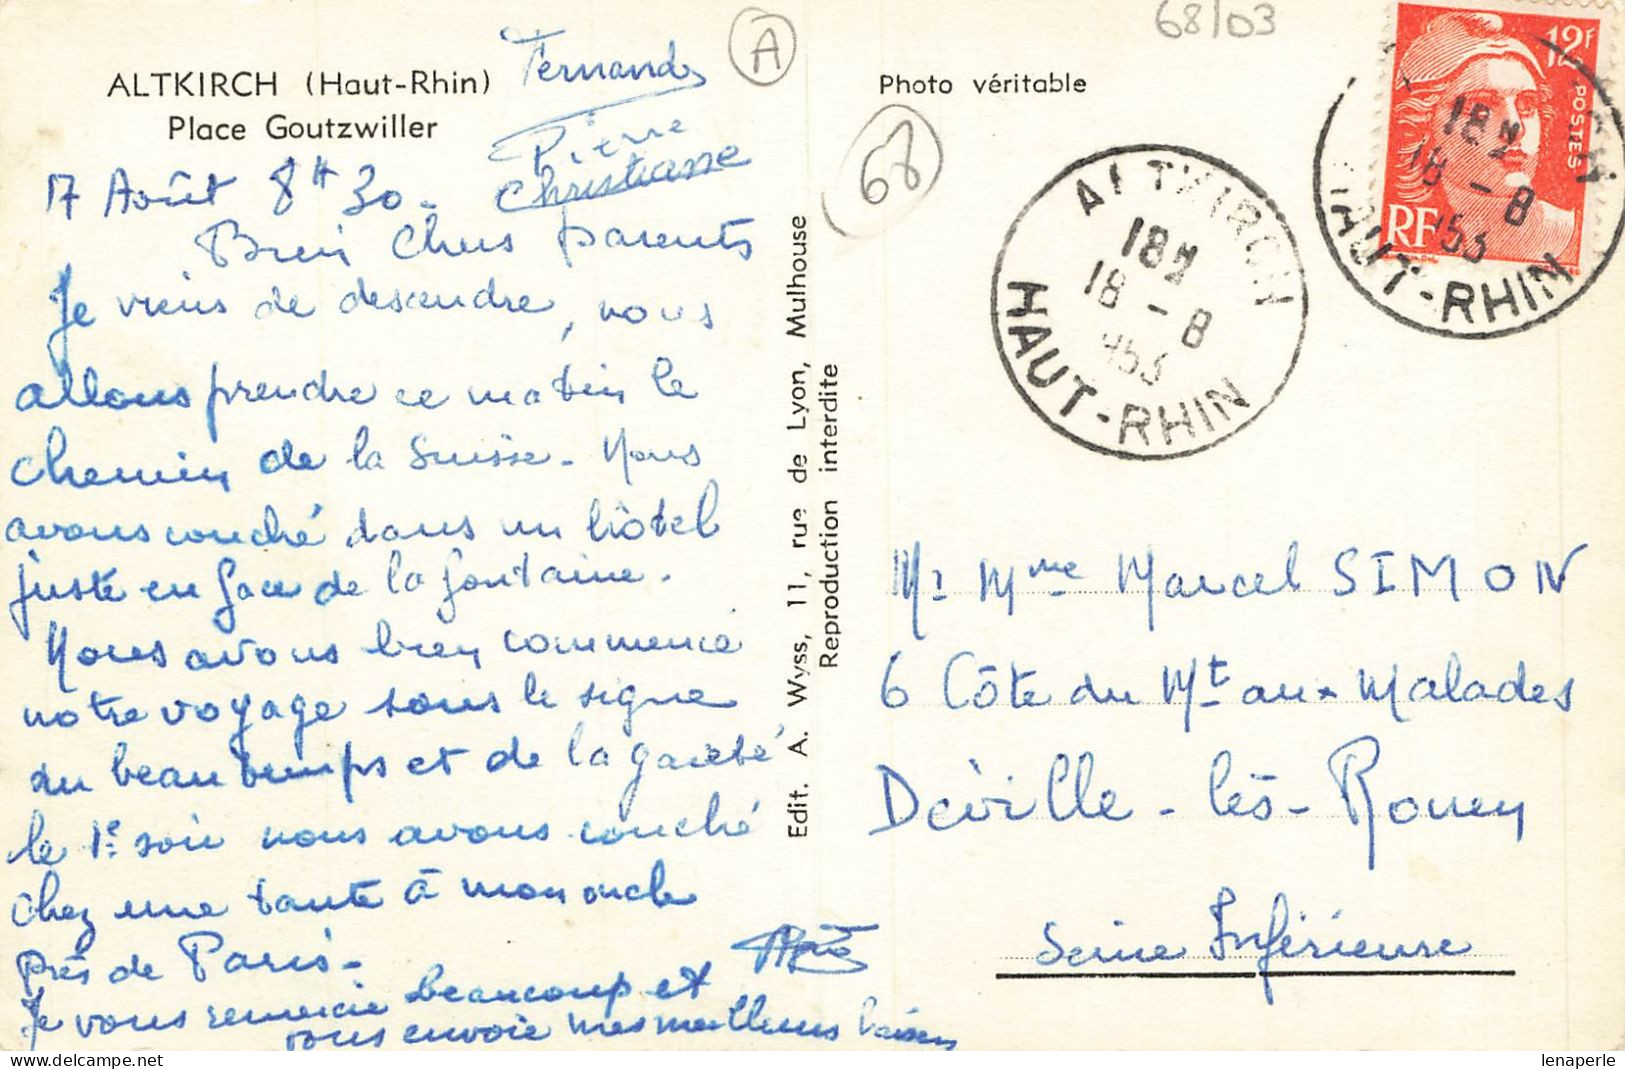 68/03
A
68
ALTKIRCH (Haut-Rhin)
Place Goutzwiller
Fernand
Pierre
Christiane
17 Août 8H30.
Bien Chers parents
Je viens de descendre, nous
allons prendre ce matin le
chemin de la Suisse. Nous
avons couché dans un hôtel
juste en face de la fontaine.
Nous avons bien commencé
notre voyage sous le signe
du beau temps et de la gaieté
le 1er soir nous avons couché
chez une tante à mon oncle
Près de Paris.
Je vous remercie beaucoup et
vous envoie mes meilleurs baisers
Edit. A. Wyss, 11, rue de Lyon, Mulhouse
Reproduction interdite
Photo véritable
12F
POSTES
RF
ALTKIRCH
18H
18 - 8
1953
HAUT-RHIN
18H
18 - 8
1953
HAUT-RHIN
Mr Mme Marcel SIMON
6 Côte du Mt aux Malades
Déville-lès-Rouen
Seine Inférieure
lenaperle